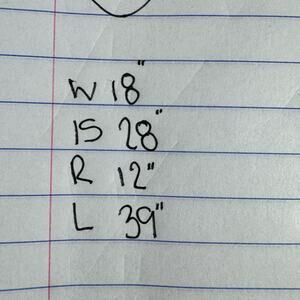 W 18"
IS 28"
R 12"
L 39"